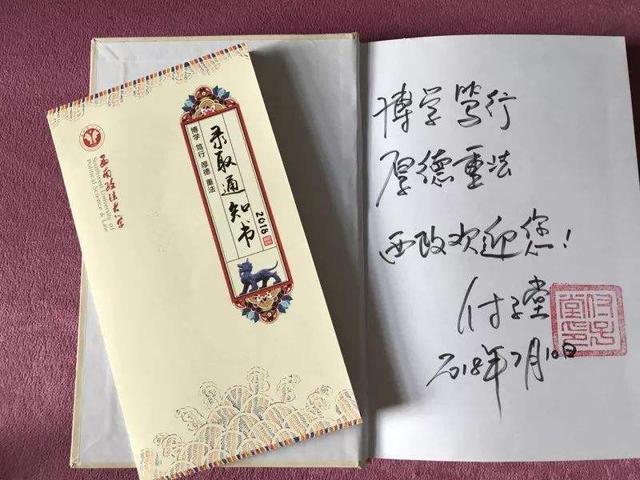 西南政法大学
Southwest University of
Political Science & Law
录取通知书
2018
博学 笃行 厚德 重法
博学笃行
厚德重法
西政欢迎您!
付子堂
2018年7月10日
付子
堂印